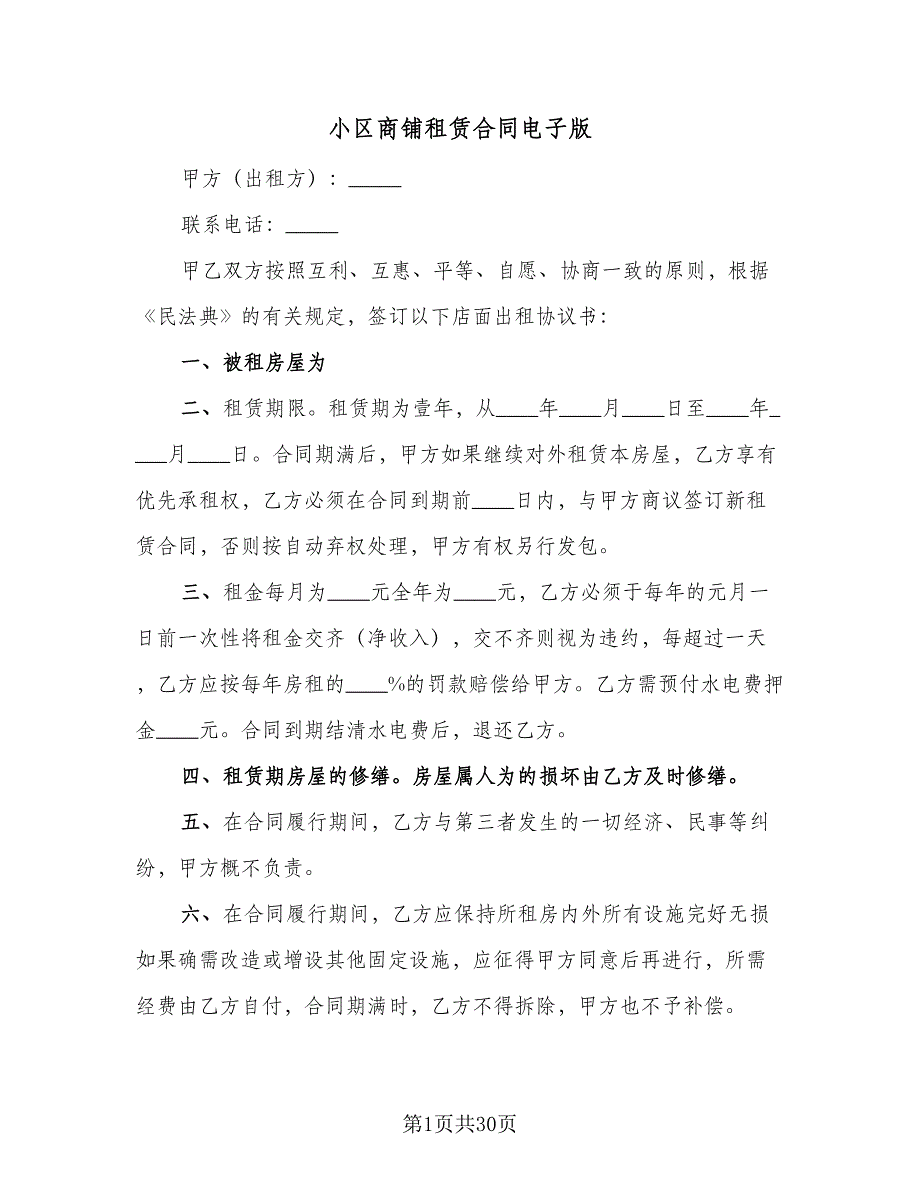 小区商铺租赁合同电子版
甲方（出租方）：_____
联系电话：_____
甲乙双方按照互利、互惠、平等、自愿、协商一致的原则，根据
《民法典》的有关规定，签订以下店面出租协议书：
一、被租房屋为
二、租赁期限。租赁期为壹年，从____年____月____日至____年_
___月____日。合同期满后，甲方如果继续对外租赁本房屋，乙方享有
优先承租权，乙方必须在合同到期前____日内，与甲方商议签订新租
赁合同，否则按自动弃权处理，甲方有权另行发包。
三、租金每月为____元全年为____元，乙方必须于每年的元月一
日前一次性将租金交齐（净收入），交不齐则视为违约，每超过一天
，乙方应按每年房租的____%的罚款赔偿给甲方。乙方需预付水电费押
金____元。合同到期结清水电费后，退还乙方。
四、租赁期房屋的修缮。房屋属人为的损坏由乙方及时修缮。
五、在合同履行期间，乙方与第三者发生的一切经济、民事等纠
纷，甲方概不负责。
六、在合同履行期间，乙方应保持所租房内外所有设施完好无损
如果确需改造或增设其他固定设施，应征得甲方同意后再进行，所需
经费由乙方自付，合同期满时，乙方不得拆除，甲方也不予补偿。
第1页共30页